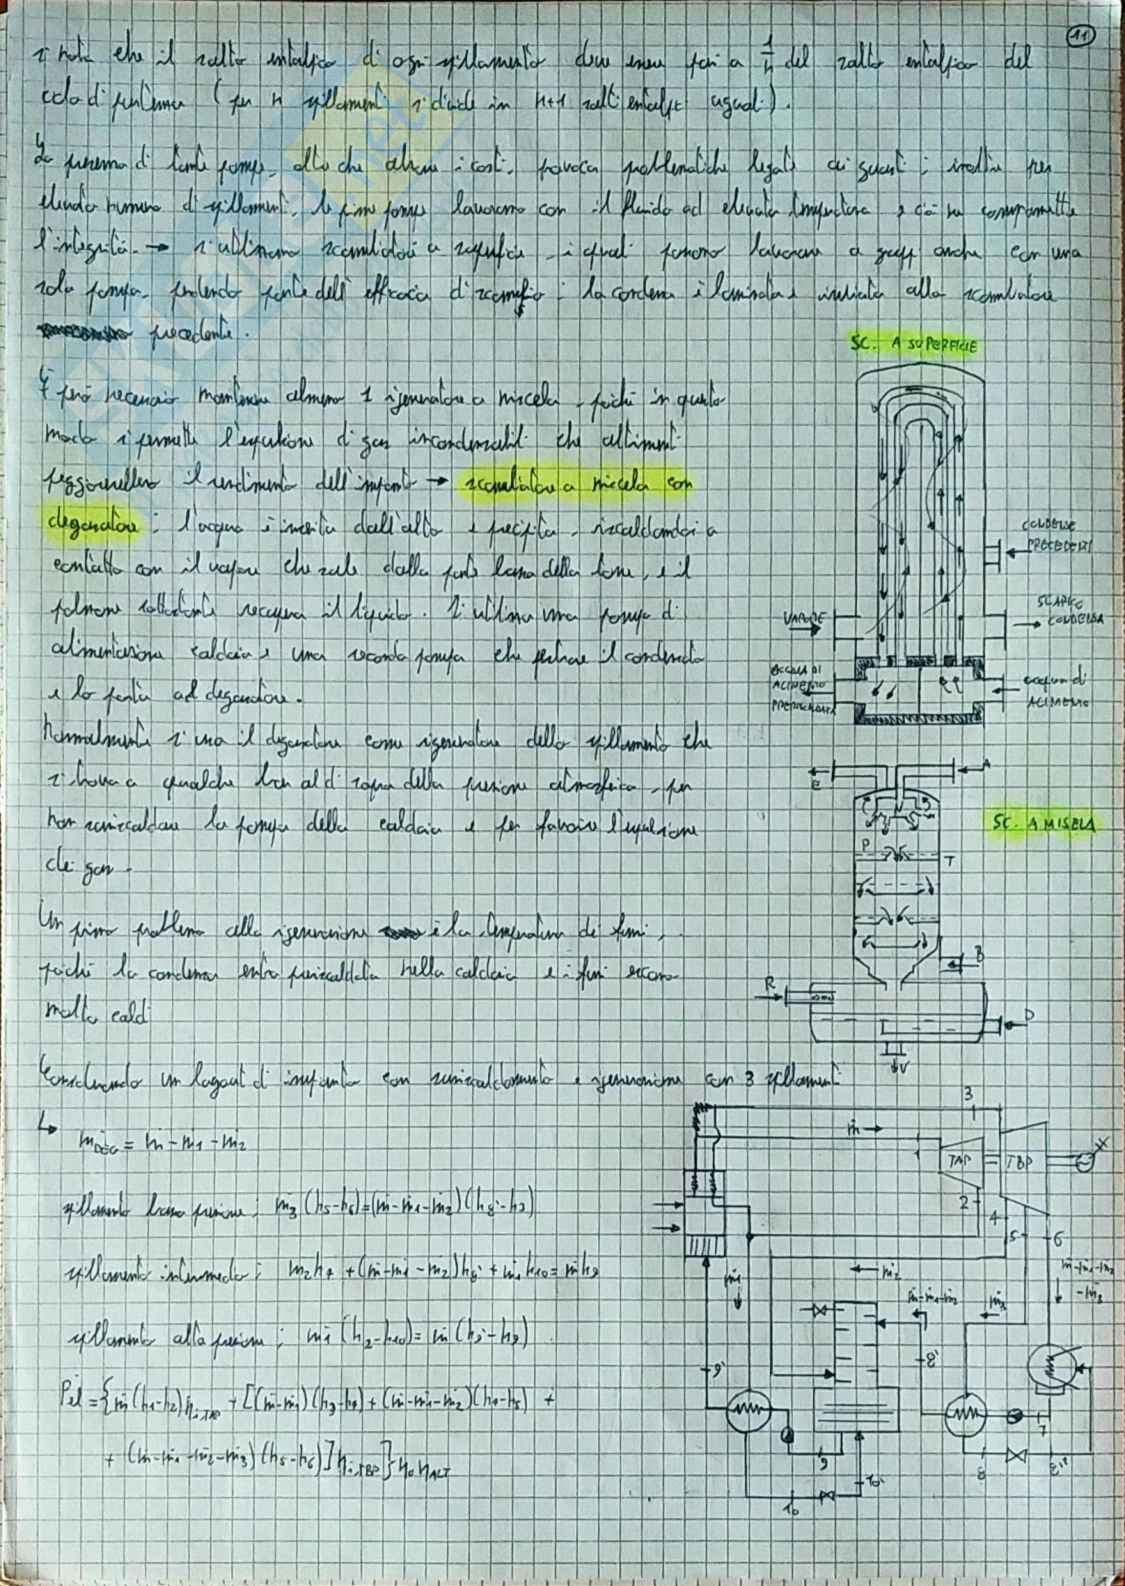 11
si nota che il salto entalpico di ogni spillamento deve essere pari a 1/n del salto entalpico del
ciclo di partenza (per n spillamenti si divide in n+1 salti entalpici uguali).
La presenza di tante pompe, oltre che alzare i costi, provoca problematiche legate ai guasti; inoltre per
elevato numero di spillamenti, le prime pompe lavorano con il fluido ad elevata temperatura e ciò ne compromette
l'integrità → si utilizzano scambiatori a superficie, i quali possono lavorare a gruppi anche con una
sola pompa, perdendo parte dell'efficacia di scambio; la condensa è laminata e inviata allo scambiatore
precedente.
SC. A SUPERFICIE
È però necessario mantenere almeno 1 rigeneratore a miscela, poiché in questo
modo si permette l'espulsione di gas incondensabili che altrimenti
peggiorerebbero il rendimento dell'impianto → scambiatore a miscela con
degasatore: l'acqua è inserita dall'alto e precipita, riscaldandosi a
contatto con il vapore che sale dalla parte bassa della torre, e il
polmone sottostante recupera il liquido. Si utilizza una pompa di
alimentazione caldaia e una seconda pompa che preleva il condensato
e lo porta al degasatore.
CONDENSE
PRECEDENTI
VAPORE
SCARICO
CONDENSA
ACQUA DI
ALIMENTO
PRERISCALDATA
acqua di
ALIMENTO
Normalmente si usa il degasatore come rigeneratore dello spillamento che
si trova a qualche bar al di sopra della pressione atmosferica, per
non surriscaldare la pompa della caldaia e per favorire l'espulsione
dei gas.
E
A
SC. A MISCELA
P
T
B
R
D
V
Un primo problema della rigenerazione è la temperatura dei fumi,
poiché la condensa entra preriscaldata nella caldaia e i fumi escono
molto caldi
Considerando un layout di impianto con surriscaldamento e rigenerazione con 3 spillamenti
↳ ṁDEG = ṁ-ṁ1-ṁ2
spillamento bassa pressione: ṁ3(h5-h8)=(ṁ-ṁ1-ṁ2)(h8'-h7)
spillamento intermedio: ṁ2h4+(ṁ-ṁ1-ṁ2)h8'+ṁ1h10=ṁh9
spillamento alta pressione: ṁ1(h2-h10)=ṁ(h9'-h9)
Pel={ṁ(h1-h2)ηi,TAP+[(ṁ-ṁ1)(h3-h4)+(ṁ-ṁ1-ṁ2)(h4-h5)+
+(ṁ-ṁ1-ṁ2-ṁ3)(h5-h6)]ηi,TBP}ηoηALT
3
ṁ
1
TAP
TBP
2
4
5
6
ṁ1
ṁ2
ṁ-ṁ1-ṁ2
ṁ3
ṁ-ṁ1-ṁ2
-ṁ3
9'
8'
7
9
10'
8
8''
10